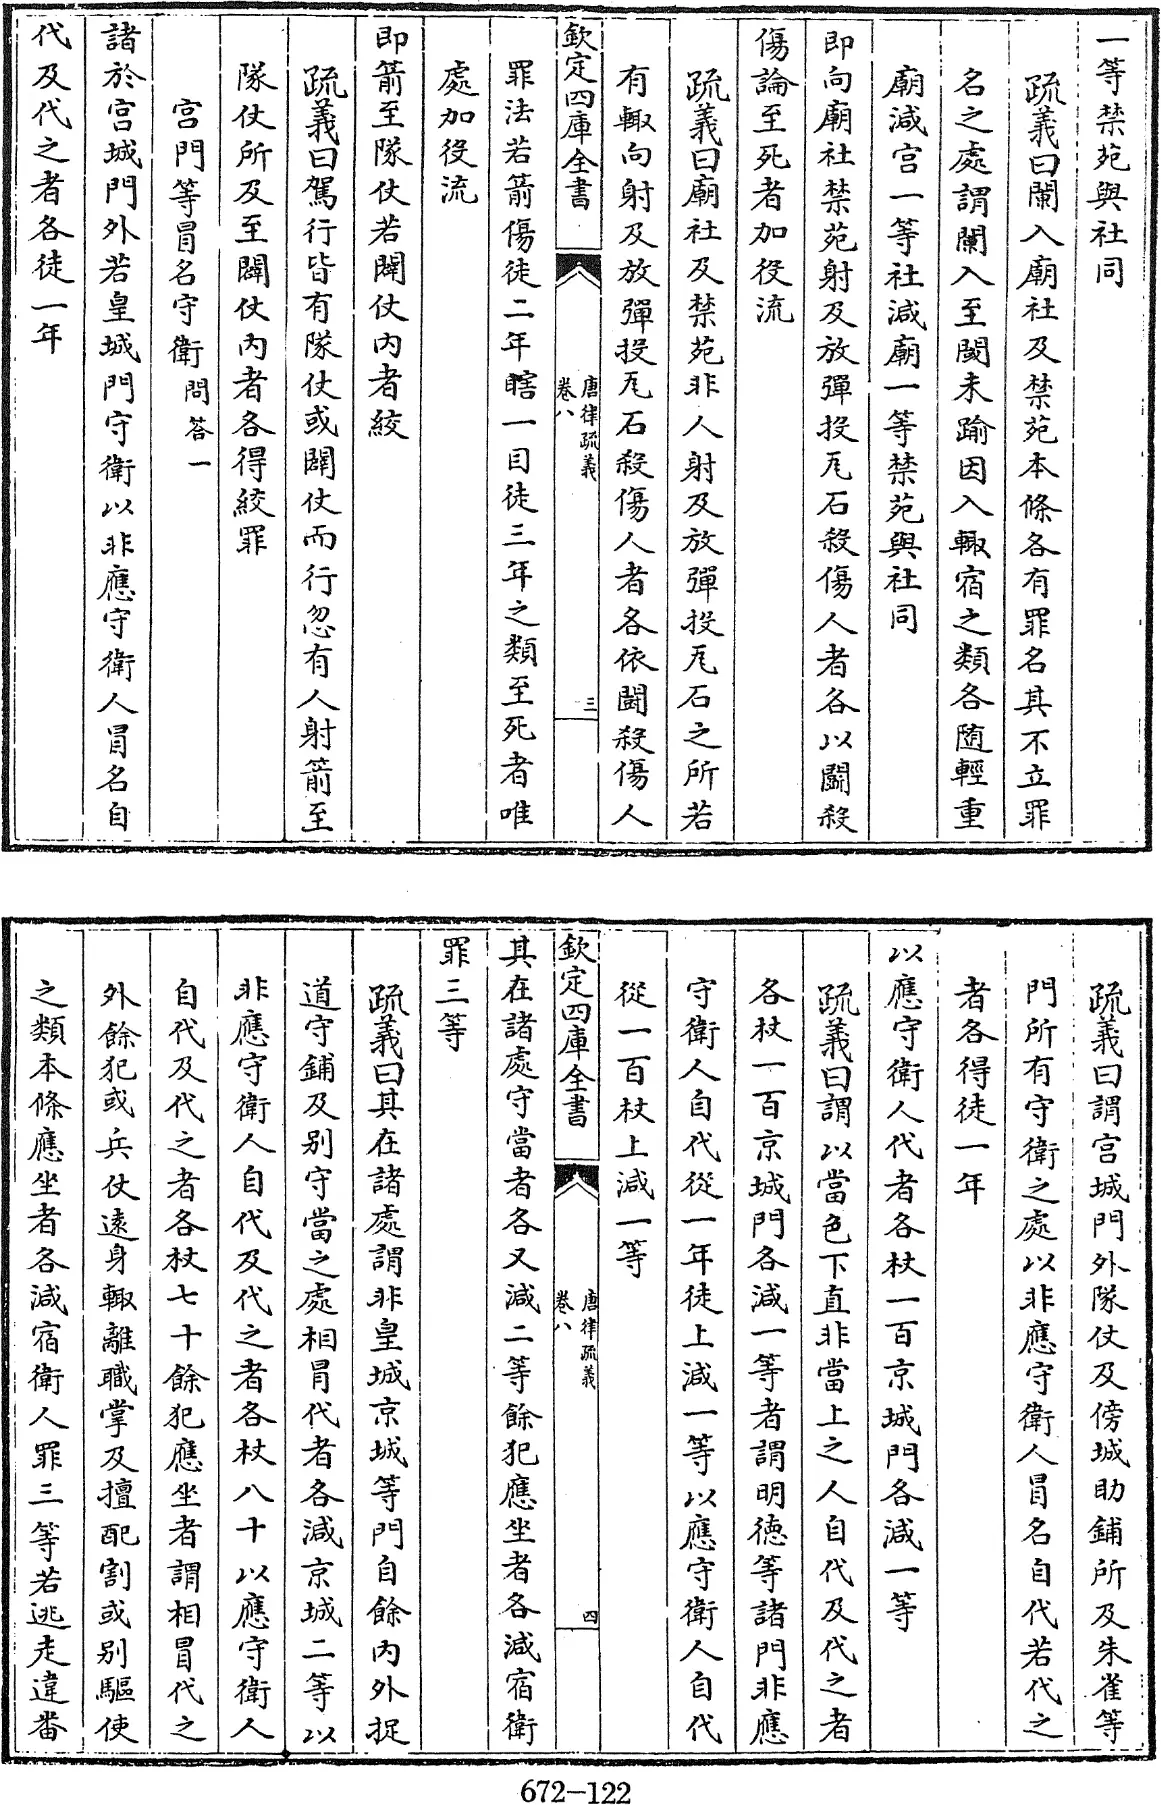 一等禁苑與社同
疏義曰闌入廟社及禁苑本條各有罪名其不立罪
名之處謂闌入至閾未踰因入輙宿之類各隨輕重
廟減宫一等社減廟一等禁苑與社同
即向廟社禁苑射及放彈投瓦石殺傷人者各以鬭殺
傷論至死者加役流
疏義曰廟社及禁苑非人射及放彈投瓦石之所若
有輙向射及放彈投瓦石殺傷人者各依鬭殺傷人
欽定四庫全書
唐律疏義
卷八
三
罪法若箭傷徒二年瞎一目徒三年之類至死者唯
處加役流
即箭至隊仗若闢仗内者絞
疏義曰駕行皆有隊仗或闢仗而行忽有人射箭至
隊仗所及至闢仗内者各得絞罪
宫門等冒名守衛問答一
諸於宫城門外若皇城門守衛以非應守衛人冒名自
代及代之者各徒一年
疏義曰謂宫城門外隊仗及傍城助鋪所及朱雀等
門所有守衛之處以非應守衛人冒名自代若代之
者各得徒一年
以應守衛人代者各杖一百京城門各減一等
疏義曰謂以當色下直非當上之人自代及代之者
各杖一百京城門各減一等者謂明德等諸門非應
守衛人自代從一年徒上減一等以應守衛人自代
從一百杖上減一等
欽定四庫全書
唐律疏義
卷八
四
其在諸處守當者各又減二等餘犯應坐者各減宿衛
罪三等
疏義曰其在諸處謂非皇城京城等門自餘内外捉
道守鋪及别守當之處相冒代者各減京城二等以
非應守衛人自代及代之者各杖八十以應守衛人
自代及代之者各杖七十餘犯應坐者謂相冒代之
外餘犯或兵仗遠身輙離職掌及擅配割或别驅使
之類本條應坐者各減宿衛人罪三等若逃走違番
672-122